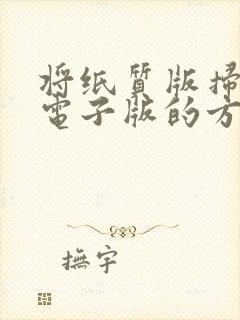 将纸質版掃
電子版的方
撫宇